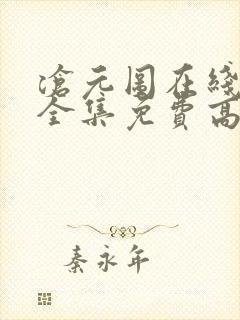 滄元圖在綫
全集免費高
秦永年